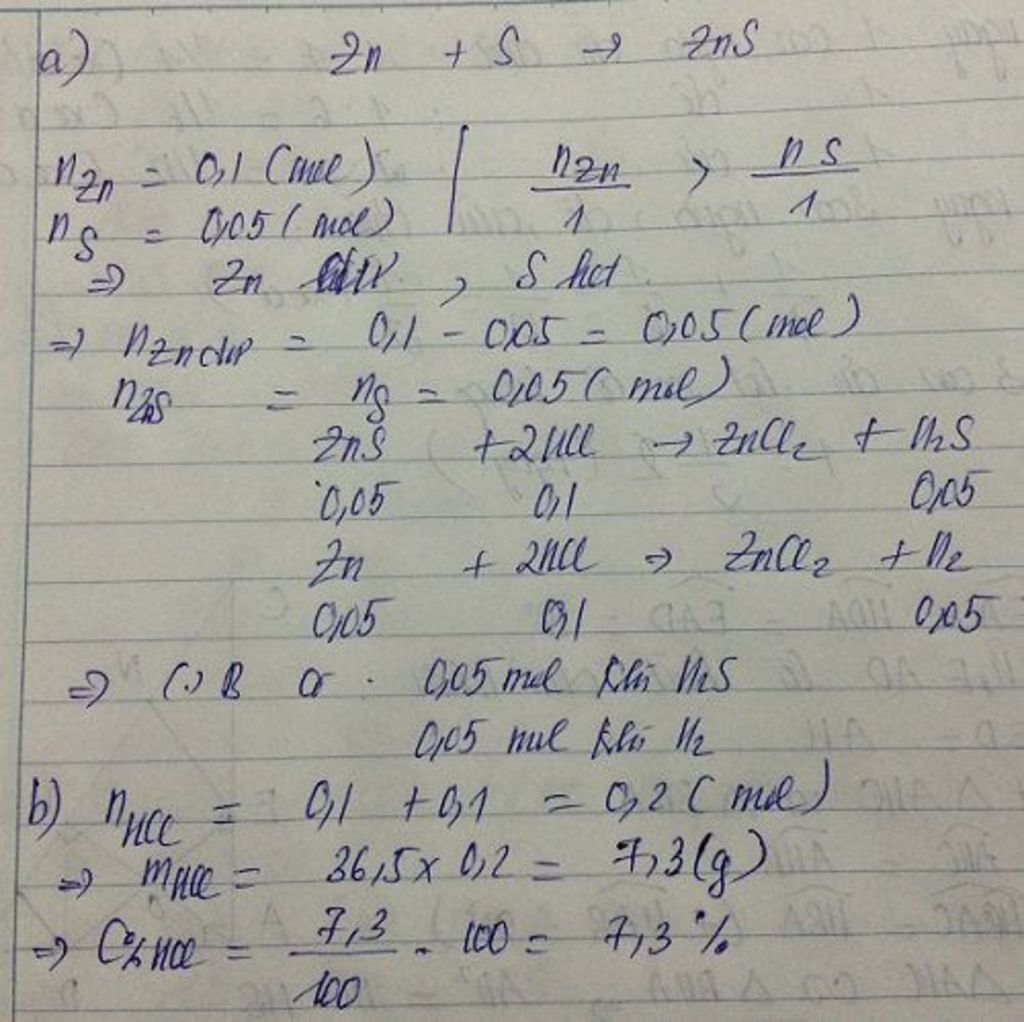 a) Zn + S → ZnS
nZn = 0,1 (mol) | nZn/1 > nS/1
nS = 0,05 (mol)
⇒ Zn dư, S hết
⇒ nZn dư = 0,1 - 0,05 = 0,05 (mol)
nZnS = nS = 0,05 (mol)
ZnS + 2HCl → ZnCl₂ + H₂S
0,05 0,1 0,05
Zn + 2HCl → ZnCl₂ + H₂
0,05 0,1 0,05
⇒ (.) B có 0,05 mol khí H₂S
0,05 mol khí H₂
b) nHCl = 0,1 + 0,1 = 0,2 (mol)
⇒ mHCl = 36,5 x 0,2 = 7,3 (g)
⇒ C% HCl = 7,3/100 . 100 = 7,3 %